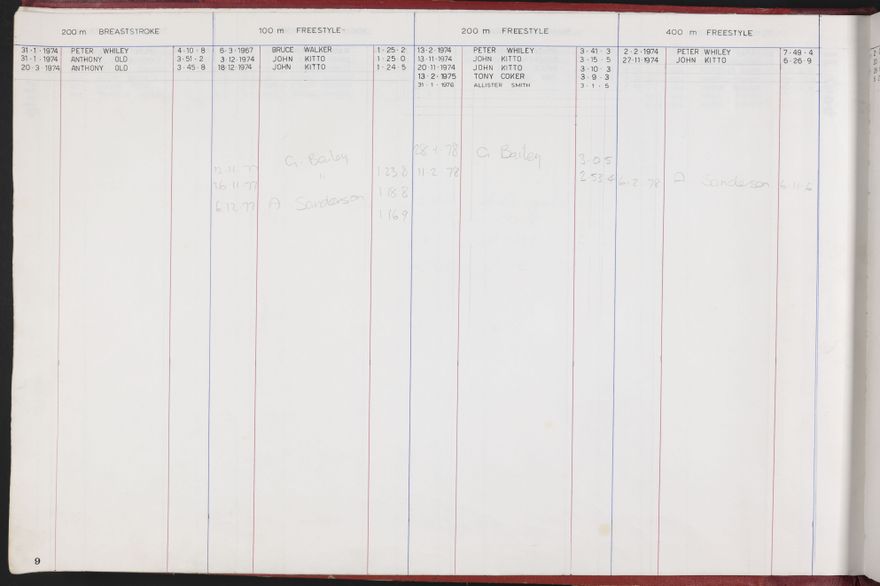 200 m BREASTSTROKE 100 m FREESTYLE 200 m FREESTYLE 400 m FREESTYLE
31·1·1974 PETER WHILEY 4·10·8 6·3·1967 BRUCE WALKER 1·25·2 13·2·1974 PETER WHILEY 3·41·3 2·2·1974 PETER WHILEY 7·49·4
31·1·1974 ANTHONY OLD 3·51·2 3·12·1974 JOHN KITTO 1·25·0 13·11·1974 JOHN KITTO 3·15·5 27·11·1974 JOHN KITTO 6·26·9
20·3·1974 ANTHONY OLD 3·45·8 18·12·1974 JOHN KITTO 1·24·5 20·11·1974 JOHN KITTO 3·10·3
13·2·1975 TONY COKER 3·9·3
31·1·1976 ALLISTER SMITH 3·1·5
G. Bailey 78 G. Bailey 3·0·5
12·11·77 " 1·23·8 11·2·78 2·53·4 6·2·78 A Sanderson 6·11·6
26·11·77 1·18·8
6·12·77 A Sanderson 1·16·9
9